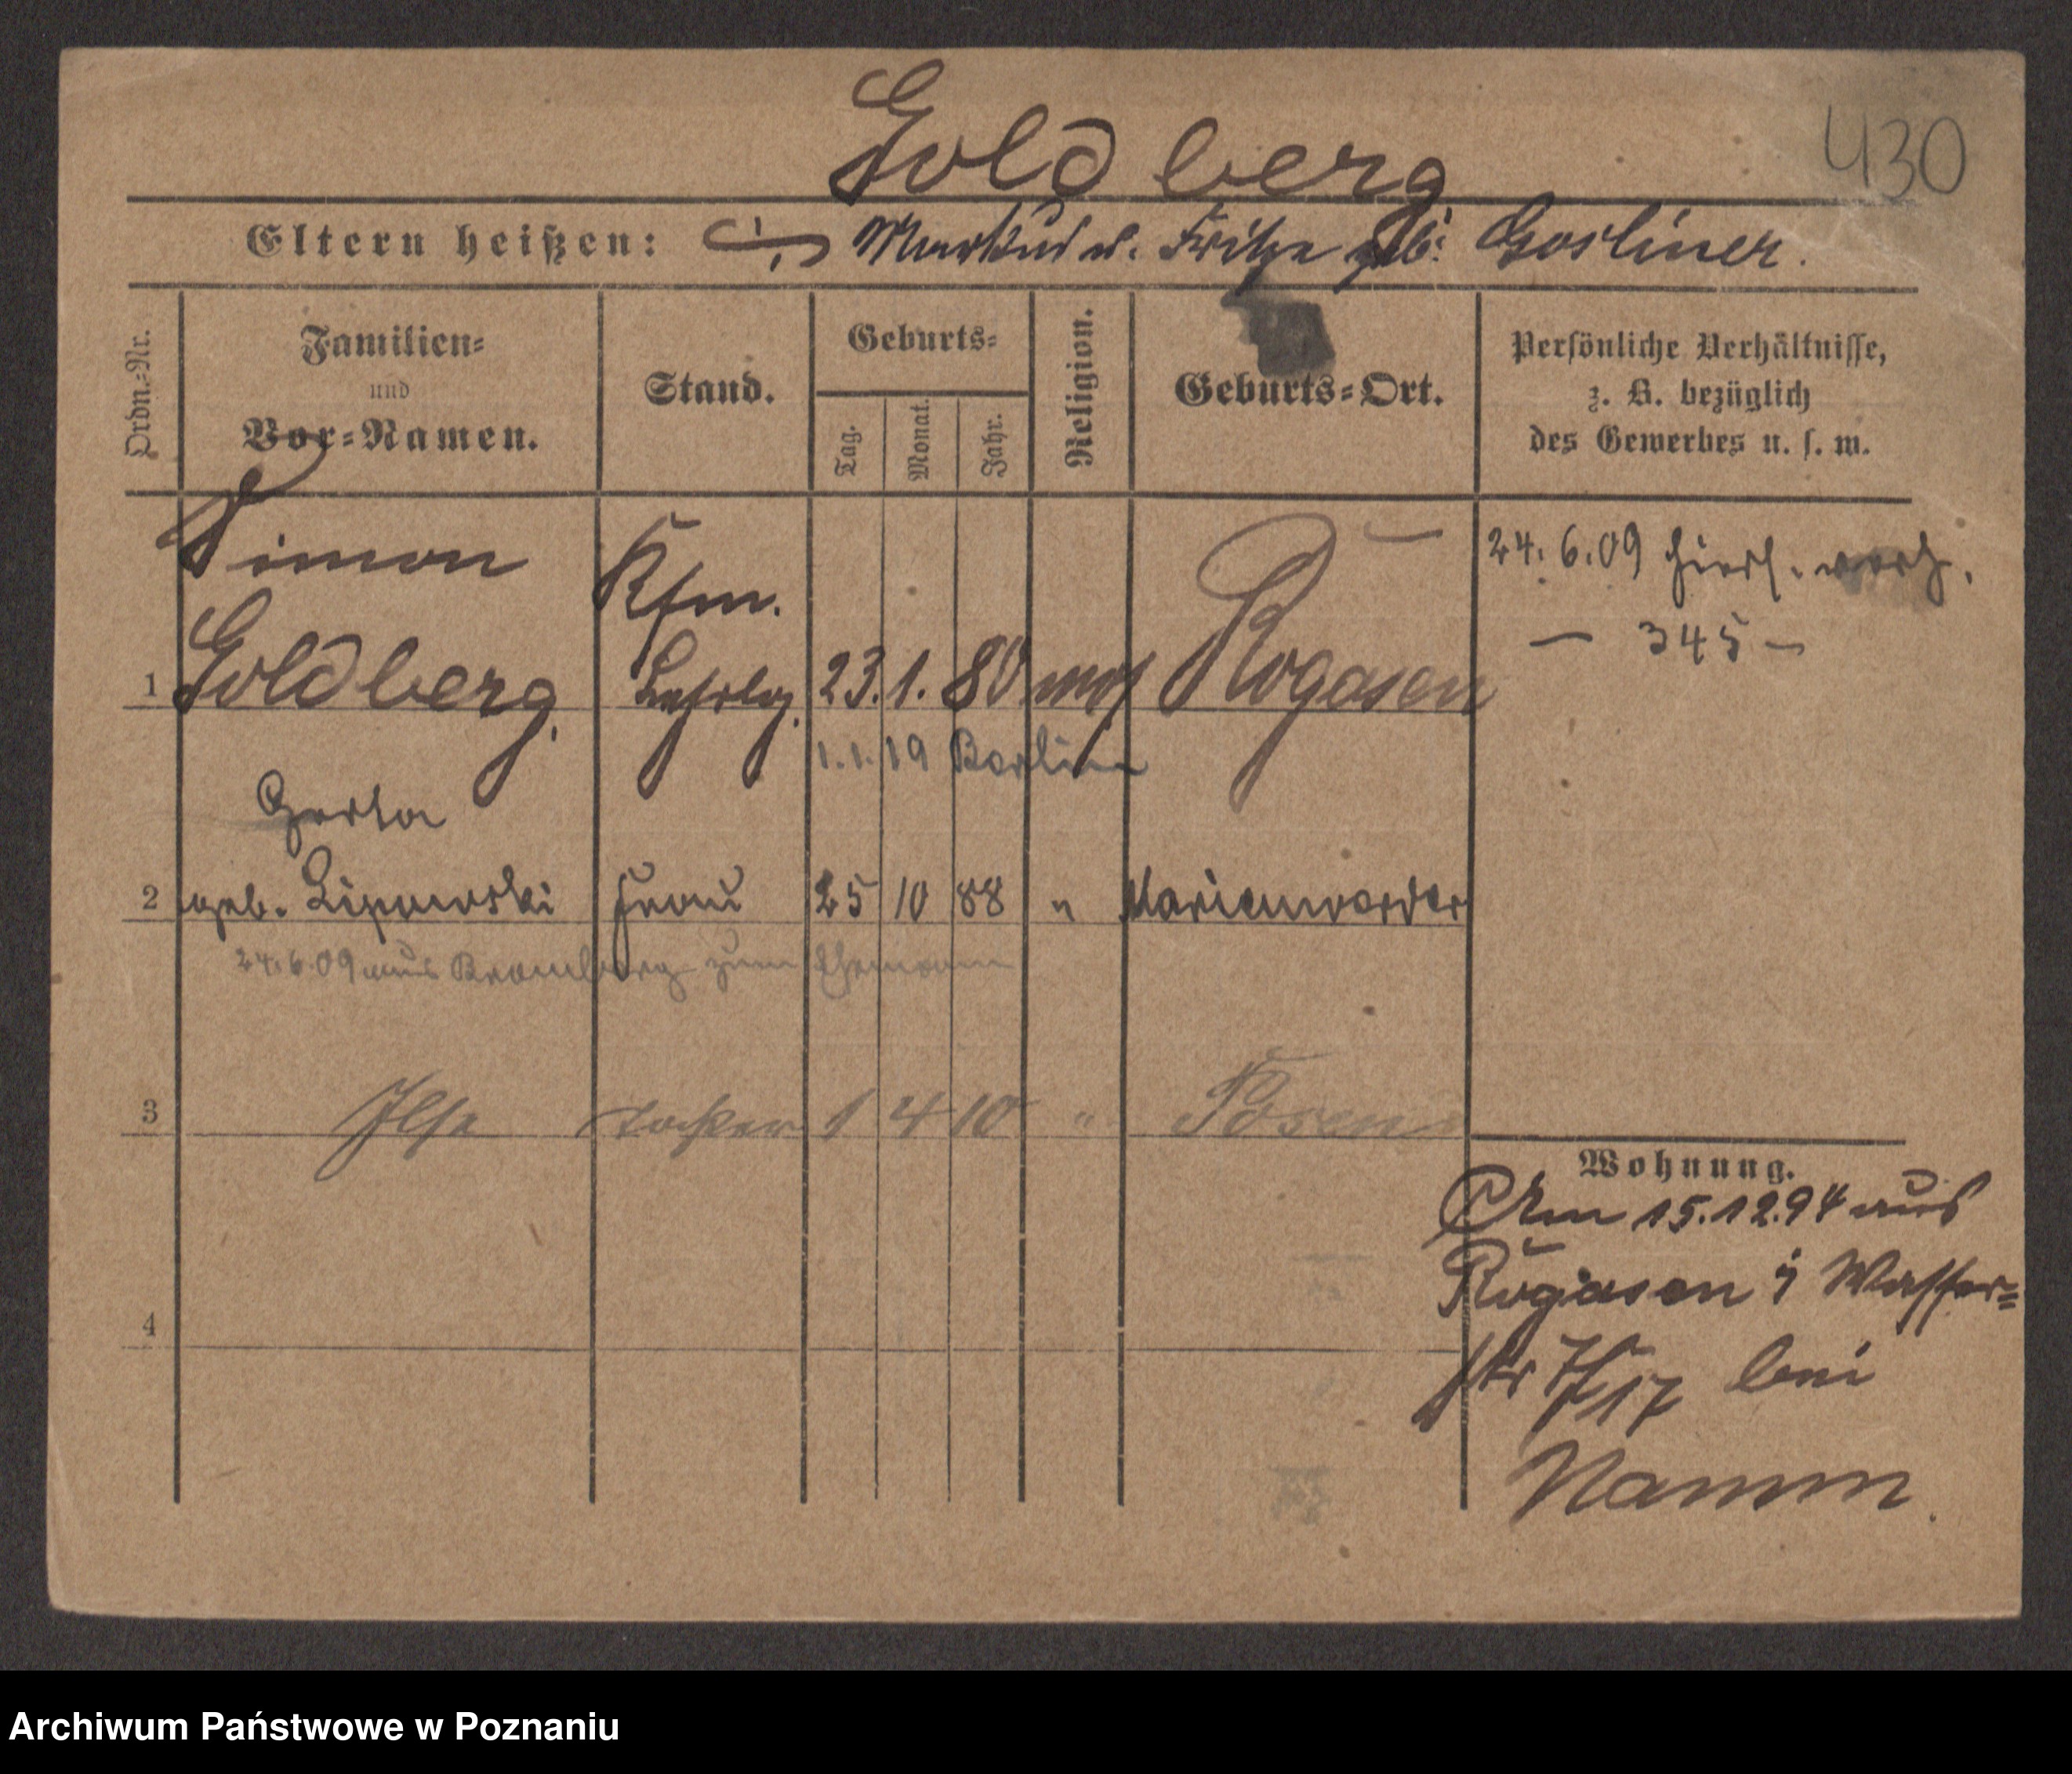 Goldberg
430
Eltern heißen: Markus u. Fritze geb. Gosliner.
Ordn.=Nr.
Familien=
und
Vor=Namen.
Stand.
Geburts=
Tag.
Monat.
Jahr.
Religion.
Geburts=Ort.
Persönliche Verhältnisse,
z. B. bezüglich
des Gewerbes u. s. w.
Simon
Kfm.
24.6.09
— 345 —
1 Goldberg. Lehrlg. 23. 1. 80 mos Rogasen
1.1.19 Berlin
Gerta
2 geb. Lipowski Frau 25 10 88 " Marienwerder
24.6.09 aus Bromberg zum Ehemann
3 Ilse Tochter 1 4 10 " Posen
Wohnung.
Am 15.12.94 aus
Rogasen Wasser=
4
str 17 bei
Hamm.
Archiwum Państwowe w Poznaniu